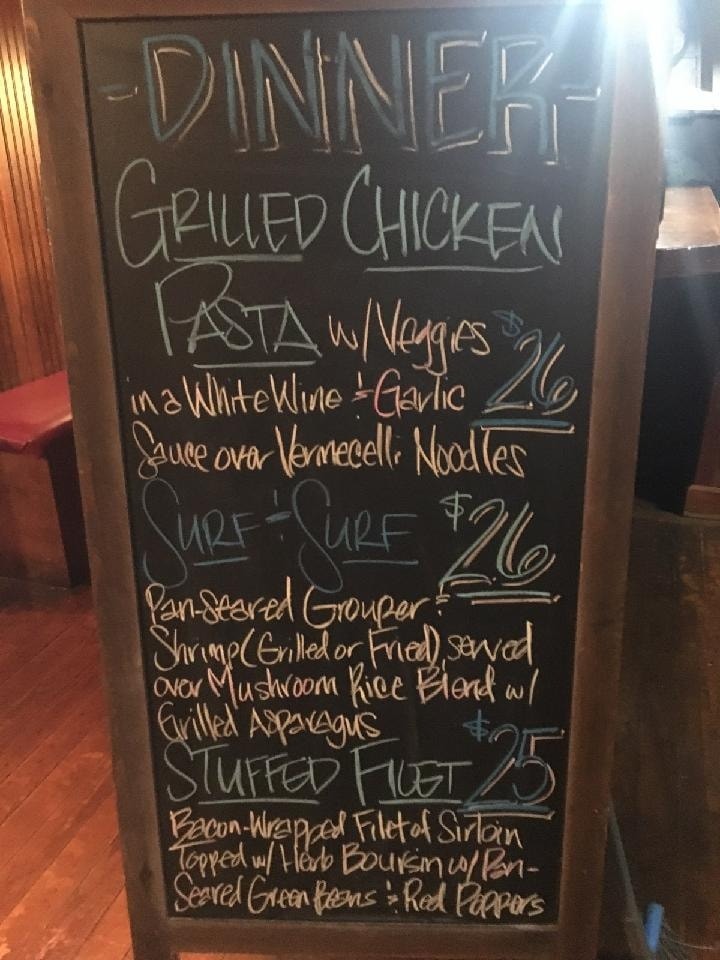 -DINNER-
GRILLED CHICKEN
PASTA w/Veggies $26
in a White Wine & Garlic
Sauce over Vermecelli Noodles
SURF & SURF $26
Pan-Seared Grouper &
Shrimp (Grilled or Fried), served
over Mushroom Rice Blend w/
Grilled Asparagus
STUFFED FILET $25
Bacon-Wrapped Filet of Sirloin
Topped w/ Herb Boursin w/ Pan-
Seared Green Beans & Red Peppers